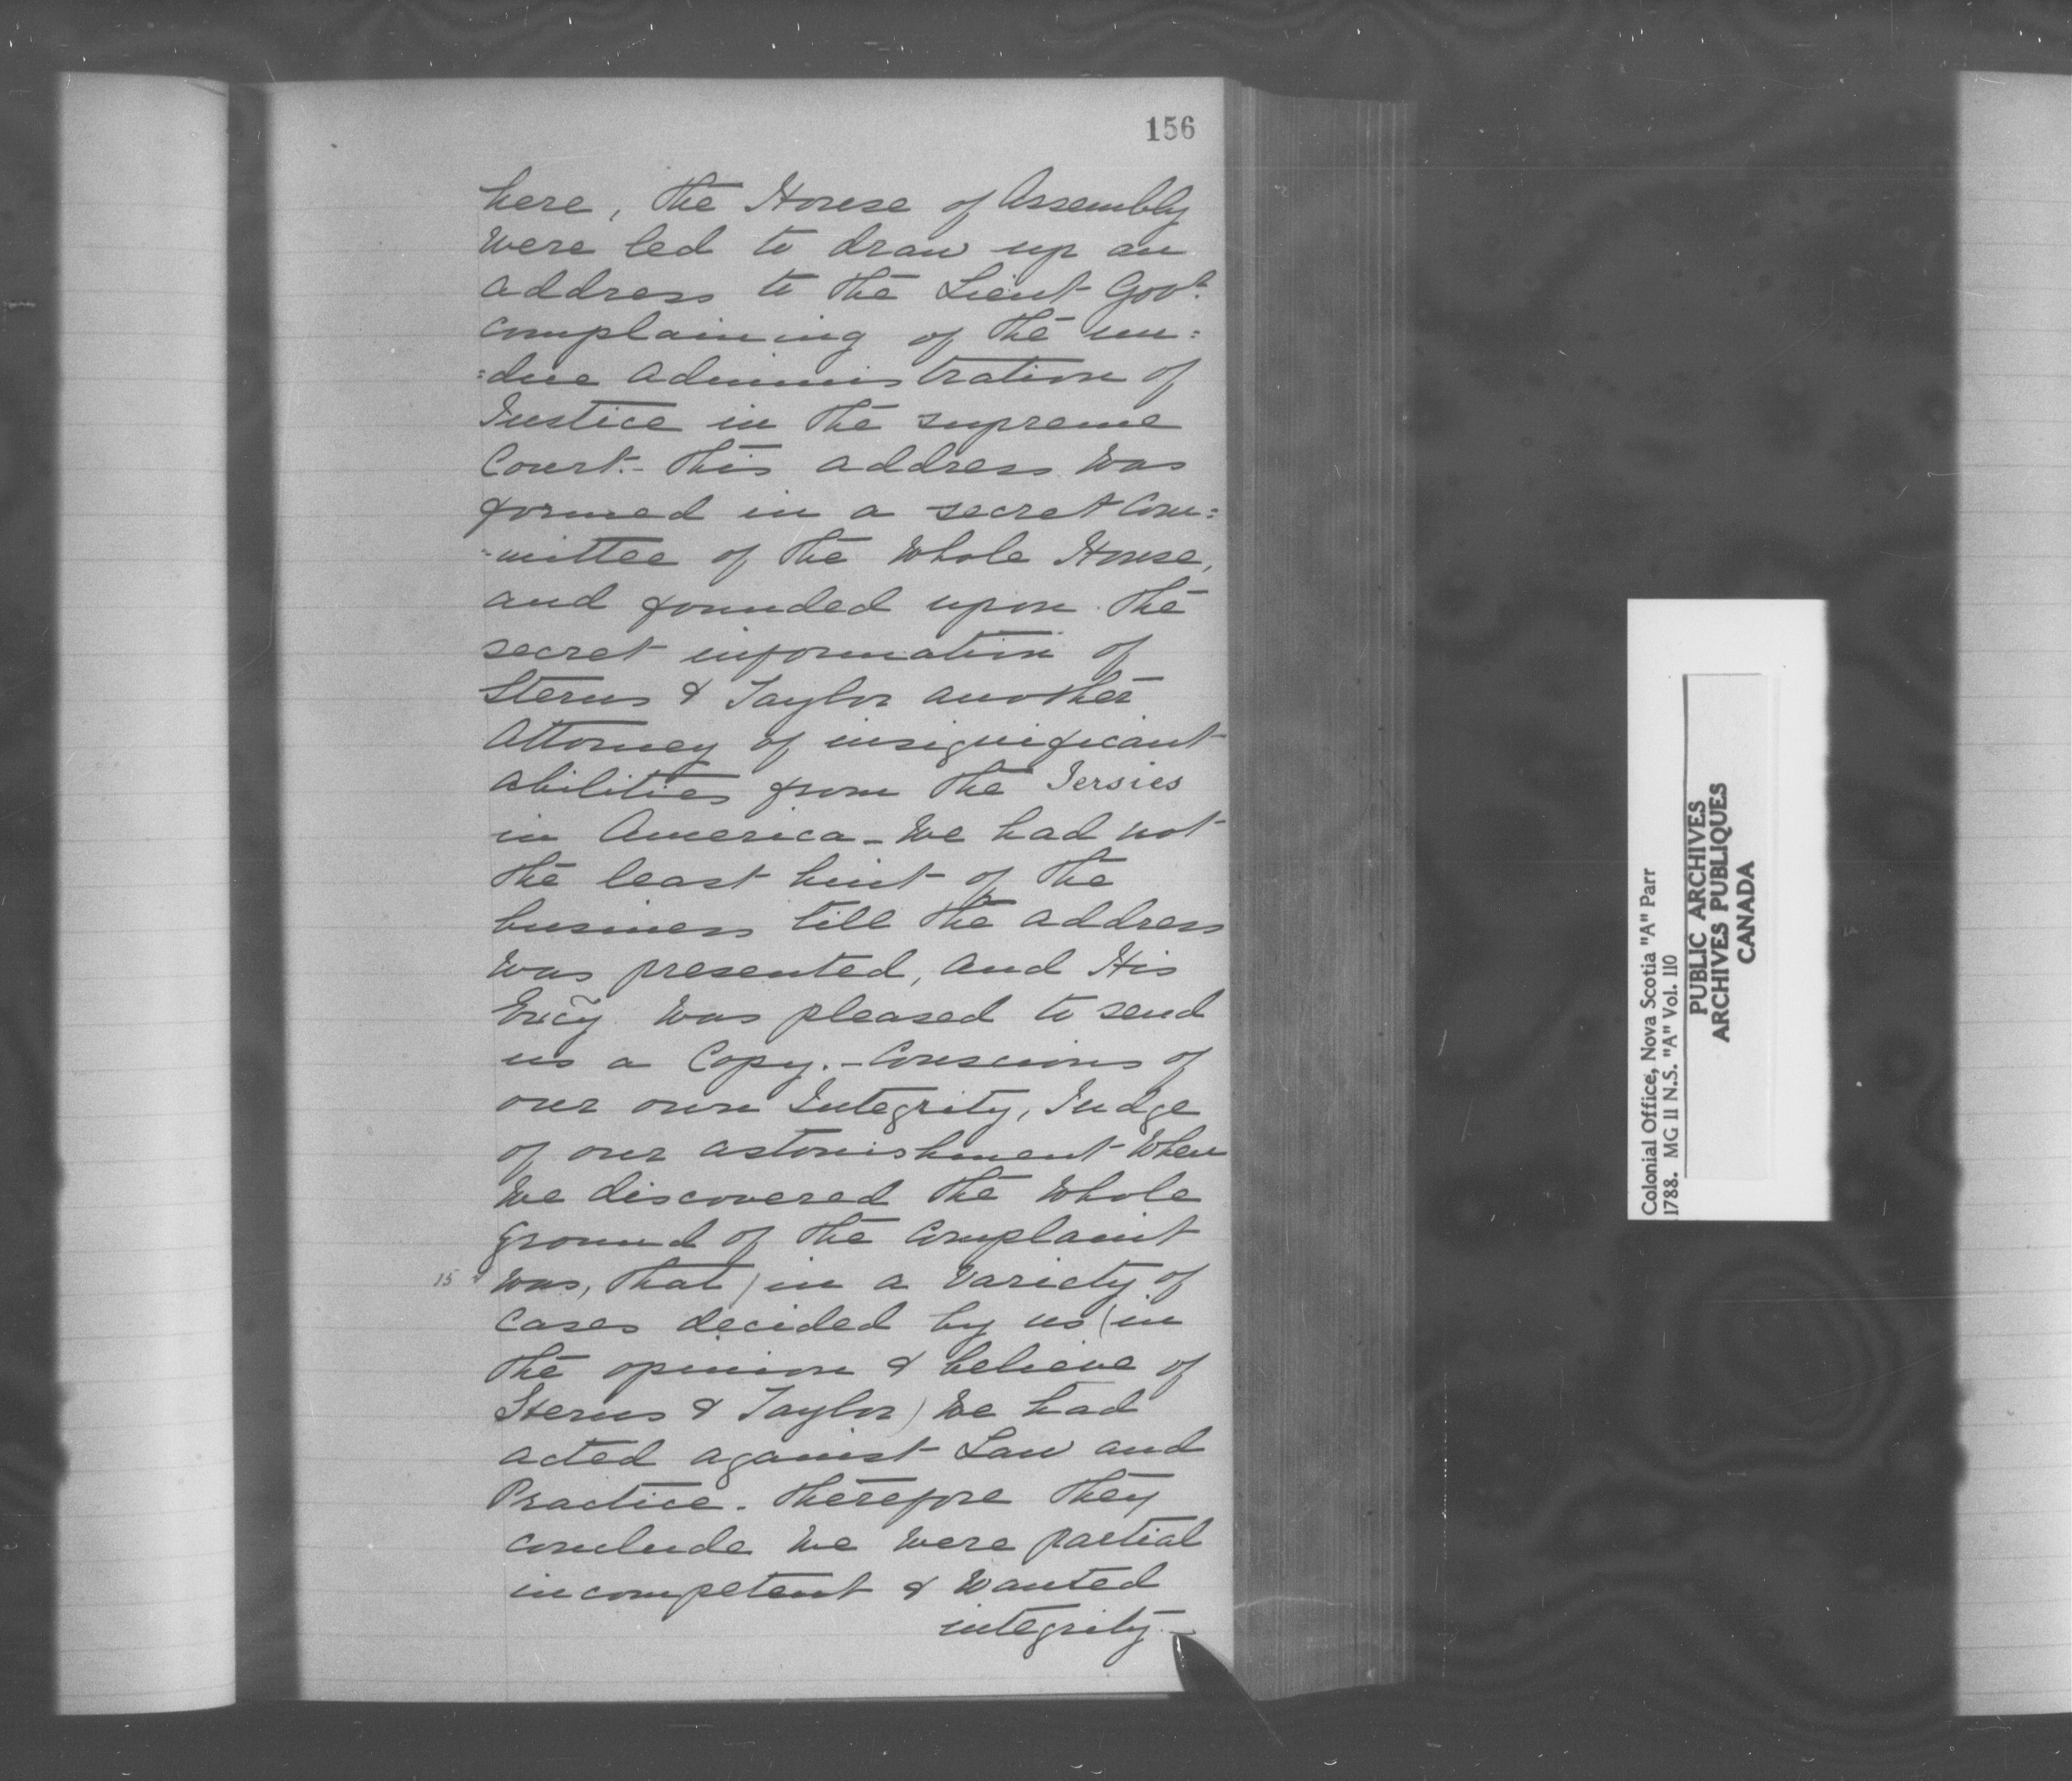 156
here, the House of Assembly
were led to draw up an
address to the Lieut Govr.
complaining of the un=
=due administration of
Justice in the supreme
Court.- this address was
formed in a secret Com=
=mittee of the whole House,
and founded upon the
secret information of
Sterns & Taylor another
Attorney of insignificant
abilities from the Jersies
in America - We had not
the least hint of the
business till the address
was presented, and His
Excy was pleased to send
us a Copy. - Conscious of
our own Integrity, Judge
of our astonishment when
we discovered the whole
ground of the Complaint
15 was, that) in a variety of
cases decided by us (in
the opinion & believe of
Sterns & Taylor) we had
acted against Law and
Practice. therefore they
conclude we were partial
incompetent & wanted
integrity -
Colonial Office, Nova Scotia "A" Parr
1788. MG 11 N.S. "A" Vol. 110
PUBLIC ARCHIVES
ARCHIVES PUBLIQUES
CANADA